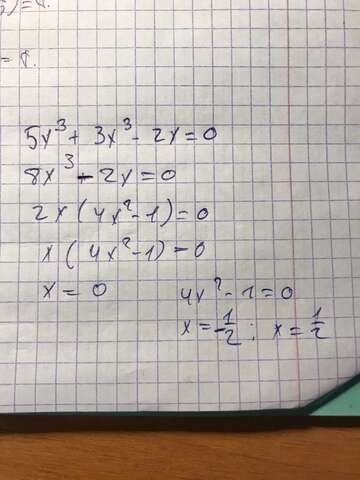 ) = 8.
= 8.
5x³ + 3x³ - 2x = 0
8x³ - 2x = 0
2x (4x² - 1) = 0
x (4x² - 1) = 0
x = 0 4x² - 1 = 0
x = -1/2 ; x = 1/2